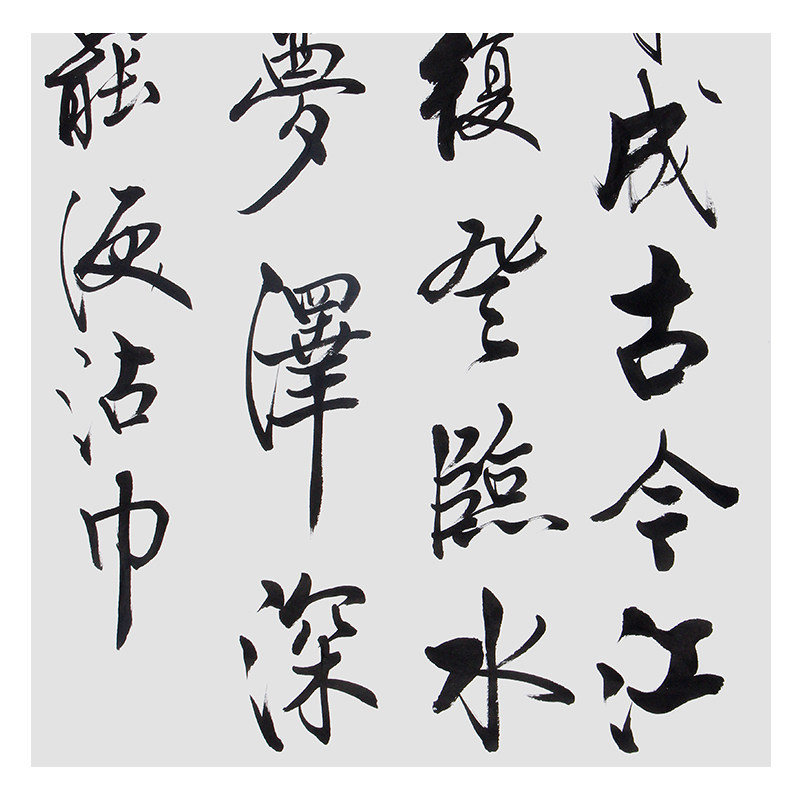 成古今江
復登臨水
夢澤深
罷淚沾巾